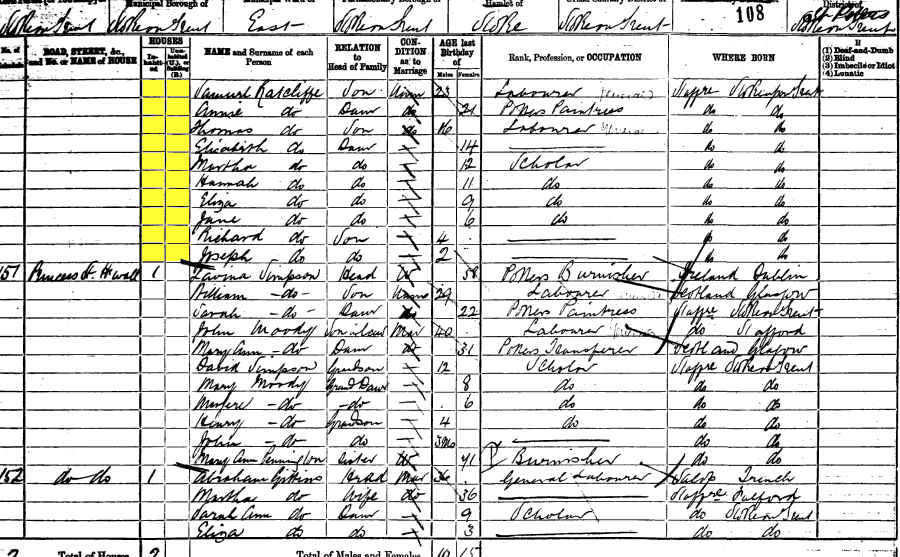 Municipal Borough of
Hamlet of
Stoke on Trent Stoke on Trent East Stoke on Trent Stoke Stoke on Trent 108 Stoke on Trent
HOUSES
No. of ROAD, STREET, &c., and No. or NAME of HOUSE Inhabited Uninhabited (U.), or Building (B.) NAME and Surname of each Person RELATION to Head of Family CONDITION as to Marriage AGE last Birthday of Males Females Rank, Profession, or OCCUPATION WHERE BORN If (1) Deaf-and-Dumb (2) Blind (3) Imbecile or Idiot (4) Lunatic
Samuel Ratcliffe Son Unm 23 Labourer Staffre Stoke upon Trent
Annie do Daur do 21 Potters Paintress do do
Thomas do Son do 16 Labourer do do
Elizabeth do Daur 14 do do
Martha do do 12 Scholar do do
Hannah do do 11 do do do
Eliza do do 9 do do do
Jane do do 6 do do do
Richard do Son 4 do do
Joseph do do 2 do do
151 Princess St. 1 Lavina Simpson Head W 58 Potters Burnisher Ireland Dublin
William -do- Son Unm 29 Labourer Scotland Glasgow
Sarah -do- Daur 22 Potters Paintress Staffre Stoke on Trent
John Moody Son in law Mar 40 Labourer do Stafford
Mary Ann -do Daur do 31 Potters Transferer Scotland Glasgow
David Simpson Grandson 12 Scholar Staffre Stoke on Trent
Mary Moody Grand Daur 8 do do do
-do -do 6 do do do
Henry -do Grandson 4 do do do
John -do do 3mo do do
Mary Ann Pennington Sister W 41 Burnisher do do
152 do do 1 Abraham Head Mar 36 General Labourer Salop
Martha do Wife do 36 Staffre Fulford
Sarah Ann do Daur 9 Scholar do Stoke on Trent
Eliza do do 3 do do
2 Total of Houses 2 Total of Males and Females 10 15